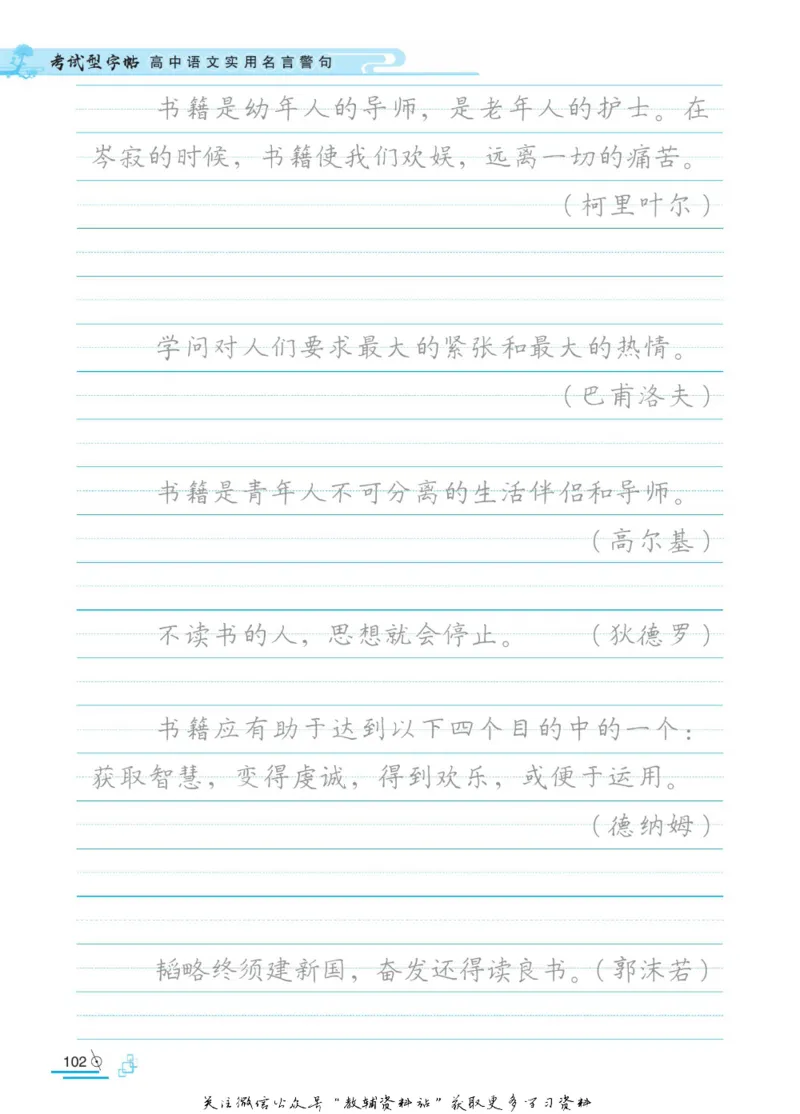 考试型字帖 高中语文实用名言警句
书籍是幼年人的导师，是老年人的护士。在
岑寂的时候，书籍使我们欢娱，远离一切的痛苦。
（柯里叶尔）
学问对人们要求最大的紧张和最大的热情。
（巴甫洛夫）
书籍是青年人不可分离的生活伴侣和导师。
（高尔基）
不读书的人，思想就会停止。 （狄德罗）
书籍应有助于达到以下四个目的中的一个：
获取智慧，变得虔诚，得到欢乐，或便于运用。
（德纳姆）
韬略终须建新国，奋发还得读良书。（郭沫若）
102
关注微信公众号“教辅资料站”获取更多学习资料